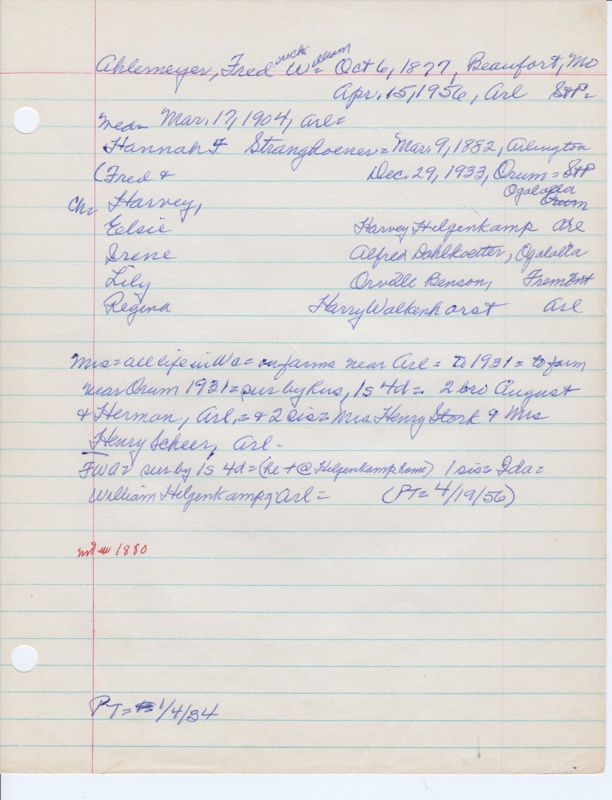 Ahlemeyer, Frederick William Oct 6, 1877, Beaufort, Mo
Apr. 15, 1956, Arl StP=
near Mar. 17, 1904, Arl=
Hannah F Stranghoener = Mar. 9, 1882, Arlington
(Fred & Dec. 29, 1933, Orum = StP
Ogalalla
Ch: Harvey, Orum
Eelsie Harvey Hilgenkamp Arl
Irene Alfred Dahlkoetter, Ogalalla
Lily Orville Benson, Fremont
Regina Harry Walkenhorst Arl
Mrs = all life in Wa = on farms near Arl = to 1931 = to farm
near Orum 1931 = sur by hus, 1s 4d = 2 bro August
& Herman, Arl, = & 2 sis = Mrs Henry Stork & Mrs
Henry Scheer, Arl -
FWA = sur by 1s 4d = (he + @ Hilgenkamp home) 1 sis = Ida =
William Hilgenkamp, Arl = (PT = 4/19/56)
not in 1880
PT = 1/4/34